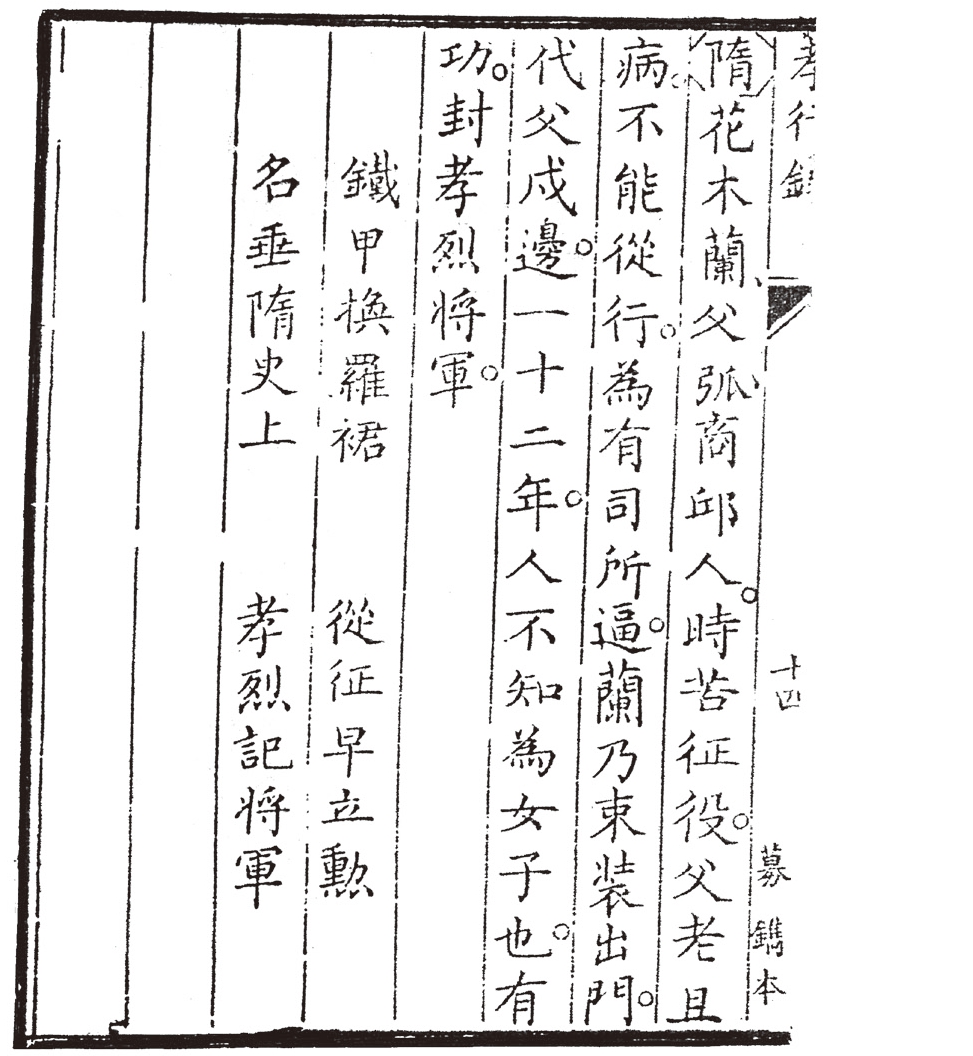 孝行錄 十四 募鐫本
隋花木蘭、父弧、商邱人。時苦征役。父老且
病。不能從行。為有司所逼。蘭乃束裝出門。
代父戍邊。一十二年。人不知為女子也。有
功。封孝烈將軍。
鐵甲換羅裙 從征早立勳
名垂隋史上 孝烈記將軍